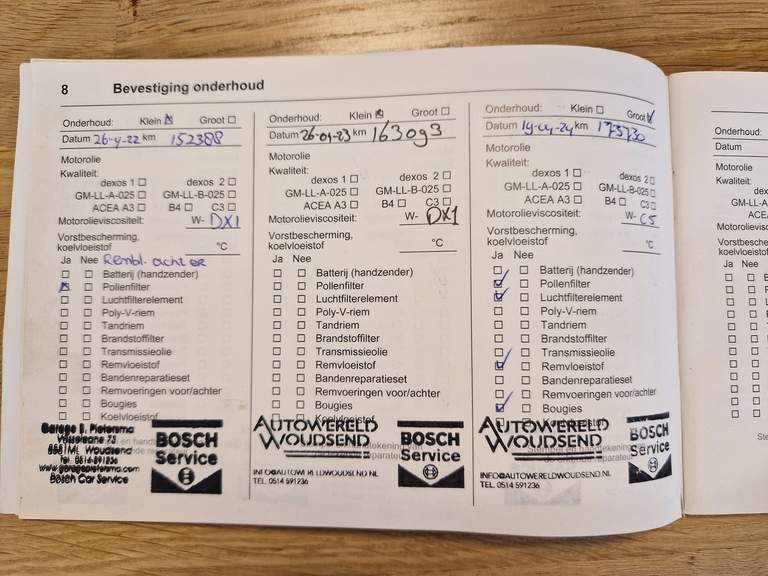 8 Bevestiging onderhoud
Onderhoud: Klein ☒ Groot ☐
Datum 26-4-22 km 152388
Motorolie
Kwaliteit:
dexos 1 ☐ dexos 2 ☐
GM-LL-A-025 ☐ GM-LL-B-025 ☐
ACEA A3 ☐ B4 ☐ C3 ☐
Motorolieviscositeit: W- DX1
Vorstbescherming,
koelvloeistof °C
Ja Nee Rembl. achter
☐ ☐ Batterij (handzender)
☒ ☐ Pollenfilter
☐ ☐ Luchtfilterelement
☐ ☐ Poly-V-riem
☐ ☐ Tandriem
☐ ☐ Brandstoffilter
☐ ☐ Transmissieolie
☐ ☐ Remvloeistof
☐ ☐ Bandenreparatieset
☐ ☐ Remvoeringen voor/achter
☐ ☐ Bougies
☐ ☐ Koelvloeistof
Garage B. Pietersma
8551ML Woudsend
Tel. 0514-591236
www.garagepietersma.com
Bosch Car Service
BOSCH
Service
Onderhoud: Klein ☒ Groot ☐
Datum 26-04-23 km 163093
Motorolie
Kwaliteit:
dexos 1 ☐ dexos 2 ☐
GM-LL-A-025 ☐ GM-LL-B-025 ☐
ACEA A3 ☐ B4 ☐ C3 ☐
Motorolieviscositeit: W- DX1
Vorstbescherming,
koelvloeistof °C
Ja Nee
☐ ☐ Batterij (handzender)
☐ ☐ Pollenfilter
☐ ☐ Luchtfilterelement
☐ ☐ Poly-V-riem
☐ ☐ Tandriem
☐ ☐ Brandstoffilter
☐ ☐ Transmissieolie
☐ ☐ Remvloeistof
☐ ☐ Bandenreparatieset
☐ ☐ Remvoeringen voor/achter
☐ ☐ Bougies
☐ ☐ Koelvloeistof
AUTOWERELD
WOUDSEND
INFO@AUTOWERELDWOUDSEND.NL
TEL. 0514 591236
BOSCH
Service
Onderhoud: Klein ☐ Groot ☑
Datum 19-04-24 km 175730
Motorolie
Kwaliteit:
dexos 1 ☐ dexos 2 ☐
GM-LL-A-025 ☐ GM-LL-B-025 ☐
ACEA A3 ☐ B4 ☐ C3 ☐
Motorolieviscositeit: W- C5
Vorstbescherming,
koelvloeistof °C
Ja Nee
☐ ☐ Batterij (handzender)
☑ ☐ Pollenfilter
☑ ☐ Luchtfilterelement
☐ ☐ Poly-V-riem
☐ ☐ Tandriem
☐ ☐ Brandstoffilter
☐ ☐ Transmissieolie
☑ ☐ Remvloeistof
☐ ☐ Bandenreparatieset
☐ ☐ Remvoeringen voor/achter
☑ ☐ Bougies
☐ ☐ Koelvloeistof
AUTOWERELD
WOUDSEND
INFO@AUTOWERELDWOUDSEND.NL
TEL. 0514 591236
BOSCH
Service
Onderhoud:
Datum
Motorolie
Kwaliteit:
GM-LL-A-
Ja Nee